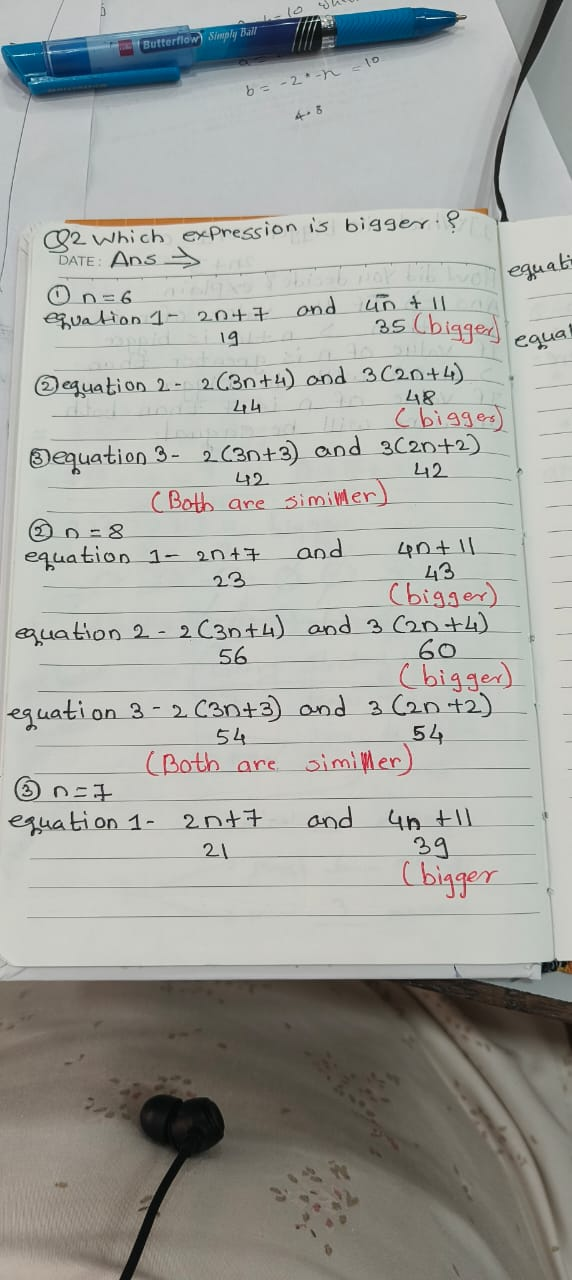 -10
Butterflow Simply Ball
b = -2 * -n = 10
4.8
Q2 Which expression is bigger ?
DATE: Ans →
① n = 6
equation 1 - 2n+7 and 4n + 11
19 35 (bigger)
② equation 2 - 2(3n+4) and 3(2n+4)
44 48
(bigger)
③ equation 3 - 2(3n+3) and 3(2n+2)
42 42
(Both are similler)
② n = 8
equation 1 - 2n+7 and 4n + 11
23 43
(bigger)
equation 2 - 2(3n+4) and 3(2n+4)
56 60
(bigger)
equation 3 - 2(3n+3) and 3(2n+2)
54 54
(Both are similler)
③ n = 7
equation 1 - 2n+7 and 4n +11
21 39
(bigger
equati
equal